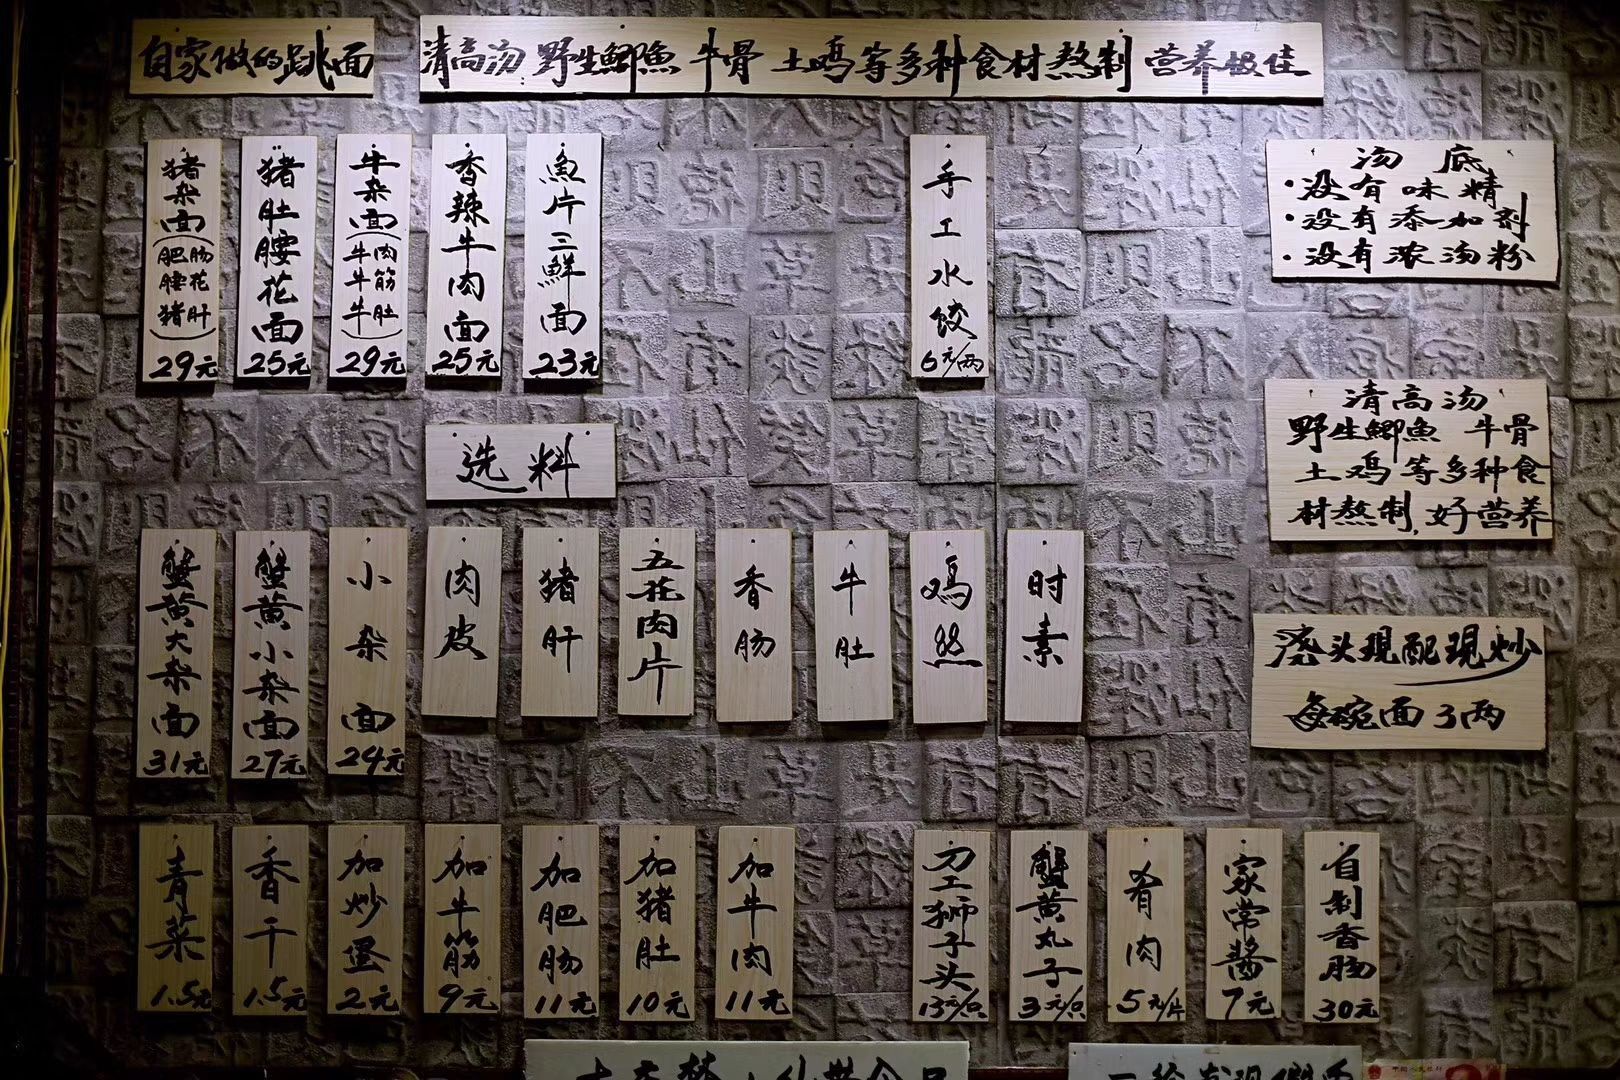 自家做的跳面
清高汤 野生鲫魚 牛骨 土鸡等多种食材熬制 营养极佳
猪杂面(肥肠腰花猪肝)
29元
猪肚腰花面
25元
牛杂面(牛肉牛筋牛肚)
29元
香辣牛肉面
25元
魚片三鮮面
23元
手工水饺
6元/两
汤 底
·没有味精
·没有添加剂
·没有浓汤粉
清高汤
野生鲫魚 牛骨
土鸡等多种食
材熬制,好营养
选料
蟹黄大杂面
31元
蟹黄小杂面
27元
小杂面
24元
肉皮
猪肝
五花肉片
香肠
牛肚
鸡丝
时素
浇头现配现炒
每碗面3两
青菜
1.5元
香干
1.5元
加炒蛋
2元
加牛筋
9元
加肥肠
11元
加猪肚
10元
加牛肉
11元
刀工狮子头
13元/只
蟹黄丸子
3元/只
肴肉
5元/片
家常醬
7元
自制香肠
30元